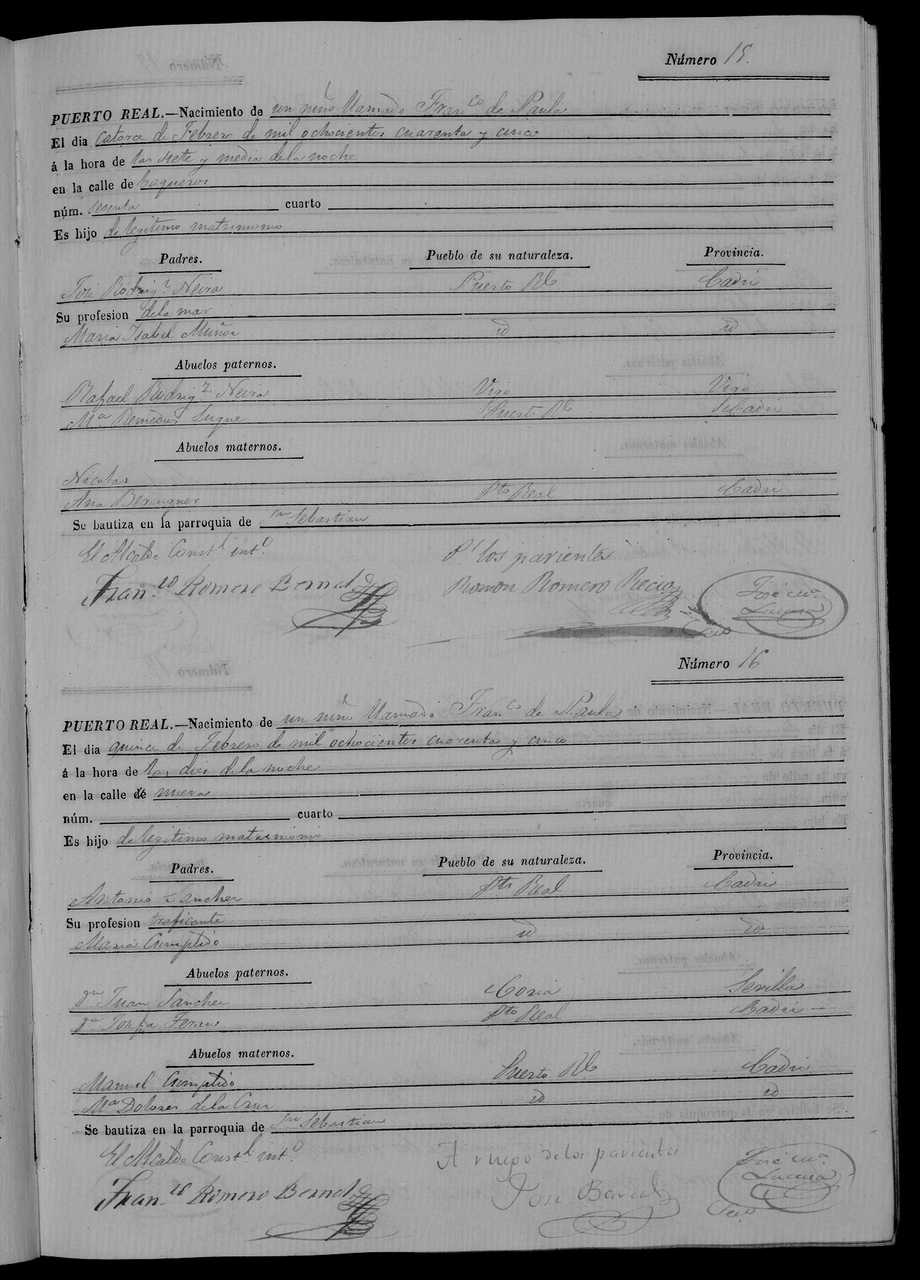 Número 15.
PUERTO REAL.—Nacimiento de un niño llamado Fran.co de Paula
El dia catorce de Febrero de mil ochocientos cuarenta y cinco
á la hora de las siete y media de la noche
en la calle de Baqueros
núm. sesenta cuarto
Es hijo de legitimo matrimonio
Padres. Pueblo de su naturaleza. Provincia.
José Rodrig.z Neira Puerto Rl Cadiz
Su profesion de la mar
Maria Isabel Muñoz id id
Abuelos paternos.
Rafael Rodrig.z Neira Vigo Vigo
M.a Remedios Luque Puerto Rl Cadiz
Abuelos maternos.
Nicolas
Ana Berenguer Pto Real Cadiz
Se bautiza en la parroquia de Sn Sebastian
El Alcalde Const.l int.o P.r los parientes
Fran.co Romero Bernal Ramon Romero Recio José M.a
Lucena
Srio
Número 16
PUERTO REAL.—Nacimiento de un niño llamado Fran.co de Paula
El dia quince de Febrero de mil ochocientos cuarenta y cinco
á la hora de las diez de la noche
en la calle de nueva
núm. cuarto
Es hijo de legitimo matrimonio
Padres. Pueblo de su naturaleza. Provincia.
Antonio Sanchez Pto Real Cadiz
Su profesion traficante
Maria Cumplido id id
Abuelos paternos.
Dn Juan Sanchez Coria Sevilla
Da Josefa Pto Real Cadiz
Abuelos maternos.
Manuel Cumplido Puerto Rl Cadiz
M.a Dolores de la Cruz id id
Se bautiza en la parroquia de Sn Sebastian
El Alcalde Const.l int.o A ruego de los parientes José M.a
Fran.co Romero Bernal José Lucena
Srio